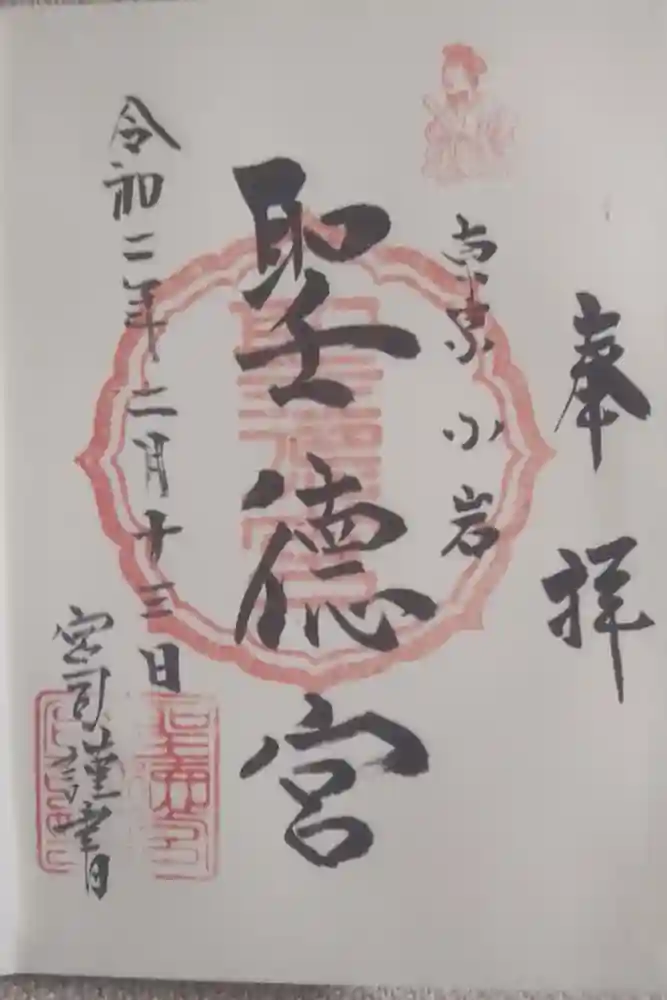 奉拝
東京 小岩
聖徳宮
令和二年 二月十三日
宮司謹書